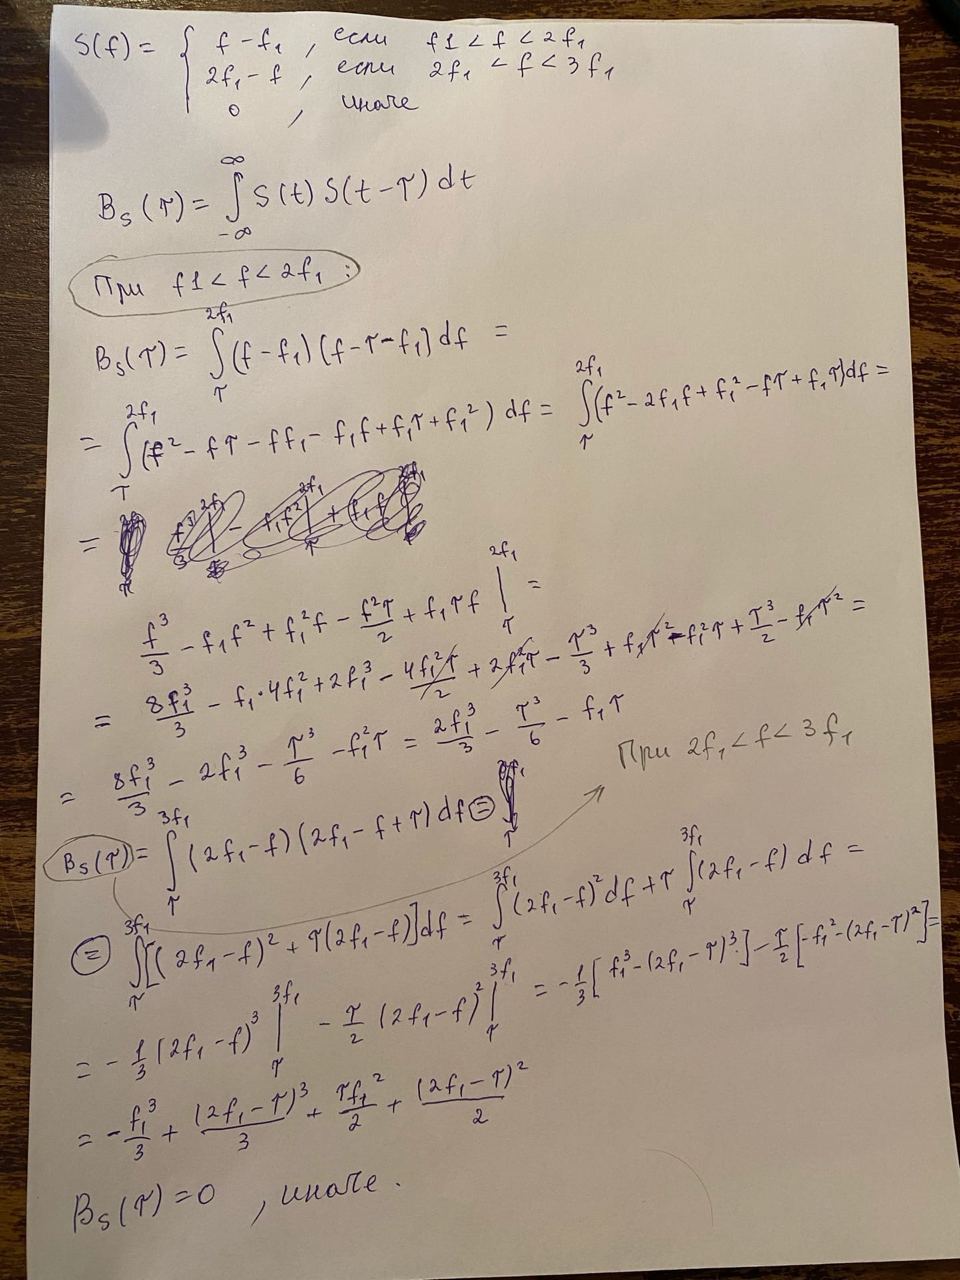 S(f) = { f - f₁ , если f1 < f < 2f₁
2f₁ - f , если 2f₁ < f < 3f₁
0 , иначе
B_S(τ) = ∫_{-∞}^{∞} S(t) S(t-τ) dt
При f1 < f < 2f₁ :
B_S(τ) = ∫_τ^{2f₁} (f - f₁)(f - τ - f₁) df =
= ∫_τ^{2f₁} (f² - fτ - ff₁ - f₁f + f₁τ + f₁²) df = ∫_τ^{2f₁} (f² - 2f₁f + f₁² - fτ + f₁τ) df =
=
f³/3 - f₁f² + f₁²f - f²τ/2 + f₁τf |_τ^{2f₁} =
= 8f₁³/3 - f₁·4f₁² + 2f₁³ - 4f₁²τ/2 + 2f₁²τ - τ³/3 + f₁τ² - f₁²τ + τ³/2 - f₁τ² =
= 8f₁³/3 - 2f₁³ - τ³/6 - f₁²τ = 2f₁³/3 - τ³/6 - f₁τ
При 2f₁ < f < 3f₁
B_S(τ) = ∫_τ^{3f₁} (2f₁ - f)(2f₁ - f + τ) df =
= ∫_τ^{3f₁} [(2f₁ - f)² + τ(2f₁ - f)] df = ∫_τ^{3f₁} (2f₁ - f)² df + τ ∫_τ^{3f₁} (2f₁ - f) df =
= - 1/3 (2f₁ - f)³ |_τ^{3f₁} - τ/2 (2f₁ - f)² |_τ^{3f₁} = - 1/3 [f₁³ - (2f₁ - τ)³] - τ/2 [-f₁² - (2f₁ - τ)²] =
= - f₁³/3 + (2f₁ - τ)³/3 + τf₁²/2 + (2f₁ - τ)²/2
B_S(τ) = 0 , иначе.